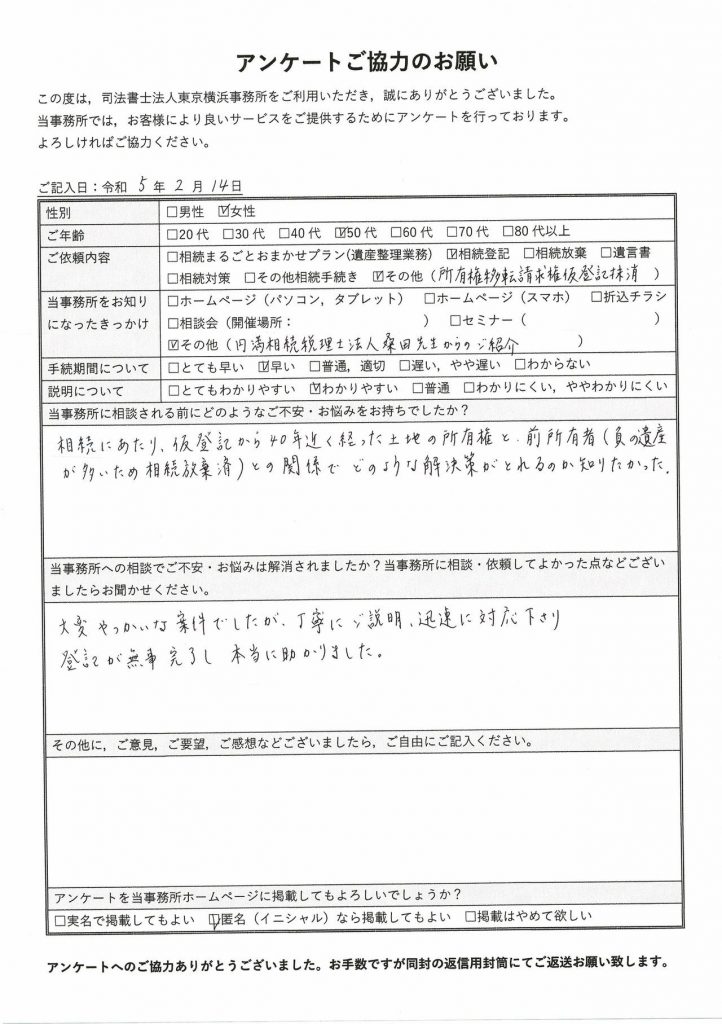 アンケートご協力のお願い
この度は，司法書士法人東京横浜事務所をご利用いただき，誠にありがとうございました。
当事務所では，お客様により良いサービスをご提供するためにアンケートを行っております。
よろしければご協力ください。
ご記入日：令和 5 年 2 月 14日
性別 □男性 ☑女性
ご年齢 □20 代 □30 代 □40 代 ☑50 代 □60 代 □70 代 □80 代以上
ご依頼内容 □相続まるごとおまかせプラン(遺産整理業務) ☑相続登記 □相続放棄 □遺言書
□相続対策 □その他相続手続き ☑その他（所有権移転請求権仮登記抹消）
当事務所をお知り □ホームページ（パソコン，タブレット） □ホームページ（スマホ） □折込チラシ
になったきっかけ □相談会（開催場所： ） □セミナー（ ）
☑その他（円満相続税理士法人桑田先生からのご紹介 ）
手続期間について □とても早い ☑早い □普通，適切 □遅い，やや遅い □わからない
説明について □とてもわかりやすい ☑わかりやすい □普通 □わかりにくい，ややわかりにくい
当事務所に相談される前にどのようなご不安・お悩みをお持ちでしたか？
相続にあたり、仮登記から40年近く経った土地の所有権と、前所有者（負の遺産
が多いため相続放棄済）との関係でどのような解決策がとれるのか知りたかった。
当事務所への相談でご不安・お悩みは解消されましたか？当事務所に相談・依頼してよかった点などござい
ましたらお聞かせください。
大変やっかいな案件でしたが、丁寧にご説明、迅速に対応下さり
登記が無事完了し本当に助かりました。
その他に，ご意見，ご要望，ご感想などございましたら，ご自由にご記入ください。
アンケートを当事務所ホームページに掲載してもよろしいでしょうか？
□実名で掲載してもよい ☑匿名（イニシャル）なら掲載してもよい □掲載はやめて欲しい
アンケートへのご協力ありがとうございました。お手数ですが同封の返信用封筒にてご返送お願い致します。